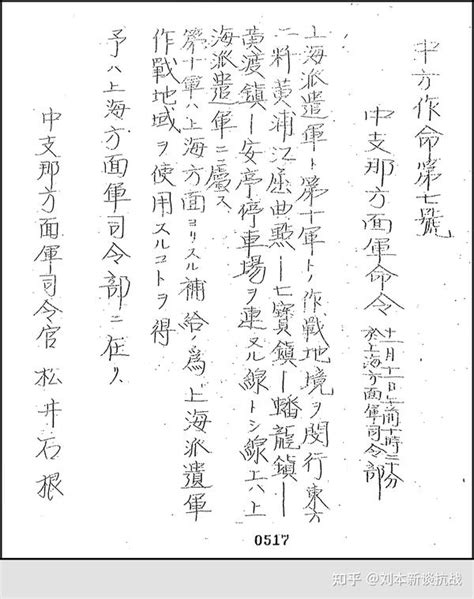 中方作命第七號
中支那方面軍命令
十一月十一日上前十時三十分
於上海方面軍司令部
上海派遣軍ト第十軍トノ作戰地境ヲ閔行東方
二粁黄浦江屈曲點ー七寶鎮ー蟠龍鎮ー
黄渡鎮ー安亭停車場ヲ連ヌル線トシ線上ハ上
海派遣軍ニ屬ス
第十軍ハ上海方面ヨリスル補給ノ爲上海派遣軍
作戰地域ヲ使用スルコトヲ得
予ハ上海方面軍司令部ニ在リ
中支那方面軍司令官 松井石根
0517
知乎 @刘本新谈抗战